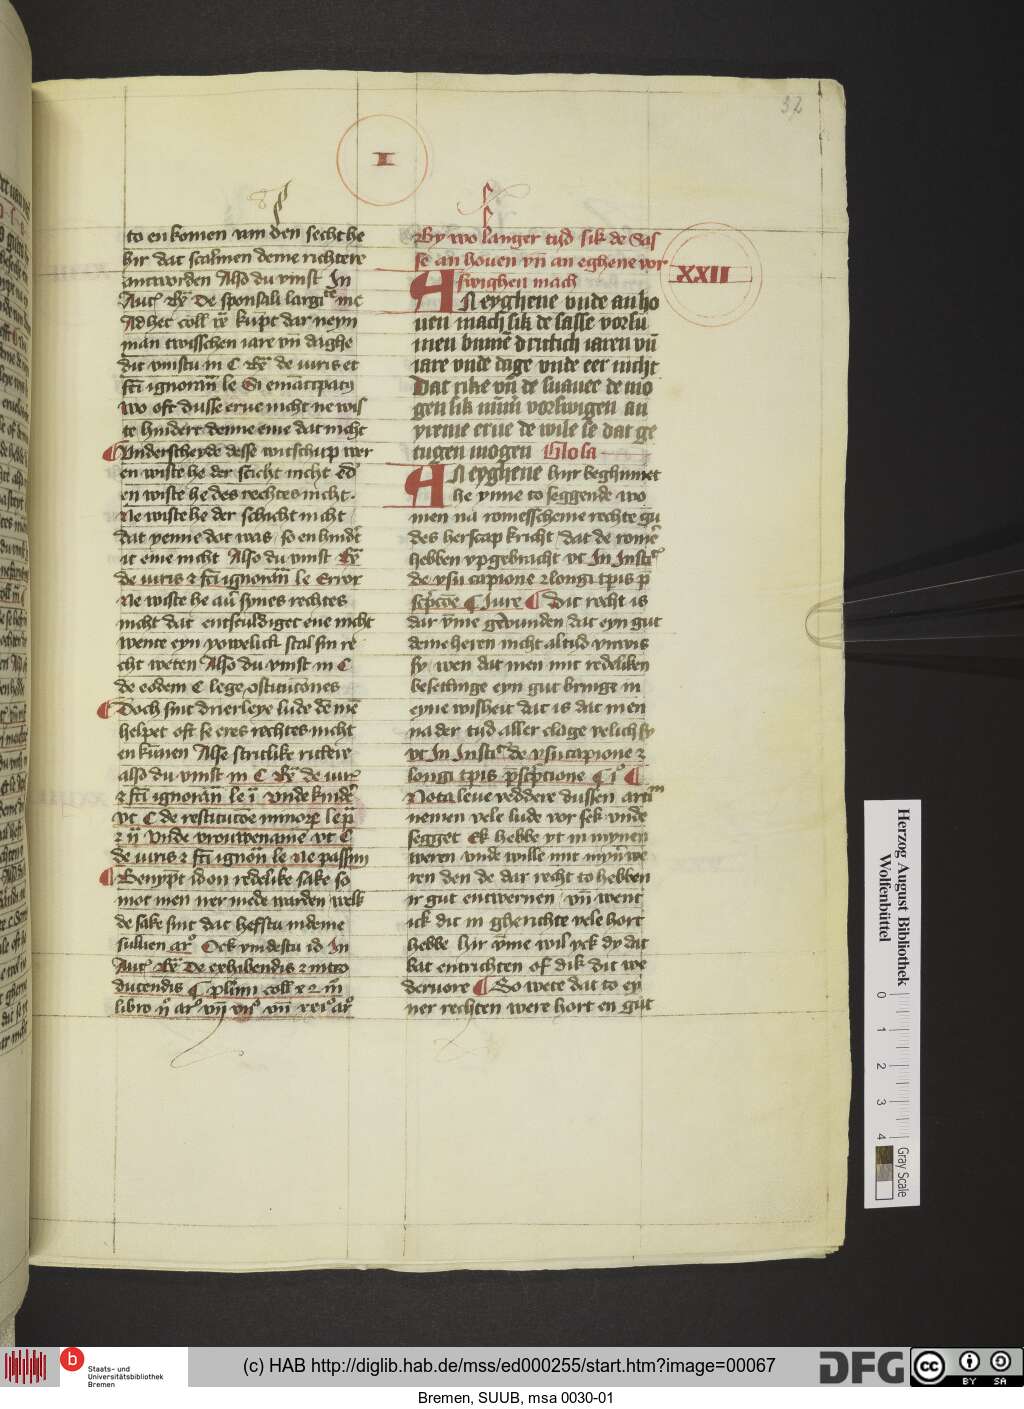 32
I
to en komen vm den secht he
hir dat scalmen deme richtere
antworden Also du vinst In
Aut̄ Rē De sponsali largitē inc
Ad hec coll xē kūpt dar neyn
man twisschen iare vn̄ daghe
dit vinstu in C Rē de iuris et
fc̄ti ignoran̄ le Si emācipati
wo oft dusse erue nicht ne wis
te hindert denne eme dat nicht
Vnderscheyde desse witschup wer
en wiste he der scicht nicht ed̄
en wiste he des rechtes nicht.
Ne wiste he der schacht nicht
dat yenne dot was so en hindt̄
it eme nicht Also du vinst Rē
de iuris ⁊ fc̄ti ignoran̄ le Error
Ne wiste he au̅ synes rechtes
nicht dat entsculdiget ene nicht
wente eyn yowelick scal sin re
cht weten Also du vinst in C
de eodem C lege ostitucōnes
¶ Doch sint drierleye lude dē mē
helpet oft se eres rechtes nicht
en kūnen Alse stritlike rittere
also du vinst in C Rē de iur̄
⁊ fc̄ti ignoran̄ le i Vnde kindē
vt C de restitucōe minoꝝ le p̄
⁊ ii Vnde vrouwename vt C
de iuris ⁊ fc̄ti ignōn le Ne passim
¶ Benypt id on redelike sake so
mot men ner mede warden welk
de sake sint dat heffstu in deme
sulluen ar̄ Ock vindestu id In
Aut̄ Rē De exhibendis ⁊ intro
ducendis ¶ p̄linn coll x ⁊ in
libro ii ar̄ vij vn̄ xxi ar̄
By wo langer tijd sik de Sas
se an houen vn̄ an eghene vor
swighen mach
XXII
AN eyghene vnde an ho
uen mach sik de sasse vorsu
men bynnē druttich iaren vn̄
iare vnde dage vnde eer nicht
Dat rike vn̄ de swauee de mo
gen sik nūm̄ vorswigen an
yreme erue de wile se dat ge
tugen mogen Glosa
AN eyghene hur beghinnet
he ynne to seggende wo
men na romesscheme rechte gu
des herscap kricht dat de romē
hebben vpgebracht vt In Instē
de vsu capione ⁊ longi tp̄is p̄
scp̄cōe ¶ Iure ¶ Dit recht is
dar v̄me geuunden dat eyn gut
deme heren nicht altijd vnwis
sy wen dat men mit redeliken
besettinge eyn gut bringe in
eyne wisheit dat is dat men
na der tijd aller clage velich sy
vt In Instē de vsucapione ⁊
longi tp̄is p̄scp̄cione ¶ i ¶
Nota leue reddere dussen arti
nemen vele lude vor sek vnde
segget Ek hebbe yt in mynen
weren vnde wille mit mynr̄ we
ren den de dar recht to hebben
ir gut entwernen vn̄ went
ick dit in gherichte vele hort
hebbe hir v̄me wil yck dy dat
bat entrichten of dik dit we
deruore ¶ So wete dat to ey
ner rechten were hort en gut
Herzog August Bibliothek
Wolfenbüttel
0 1 2 3 4
Gray Scale
b
Staats- und
Universitätsbibliothek
Bremen
(c) HAB http://diglib.hab.de/mss/ed000255/start.htm?image=00067
DFG
cc
BY SA
Bremen, SUUB, msa 0030-01